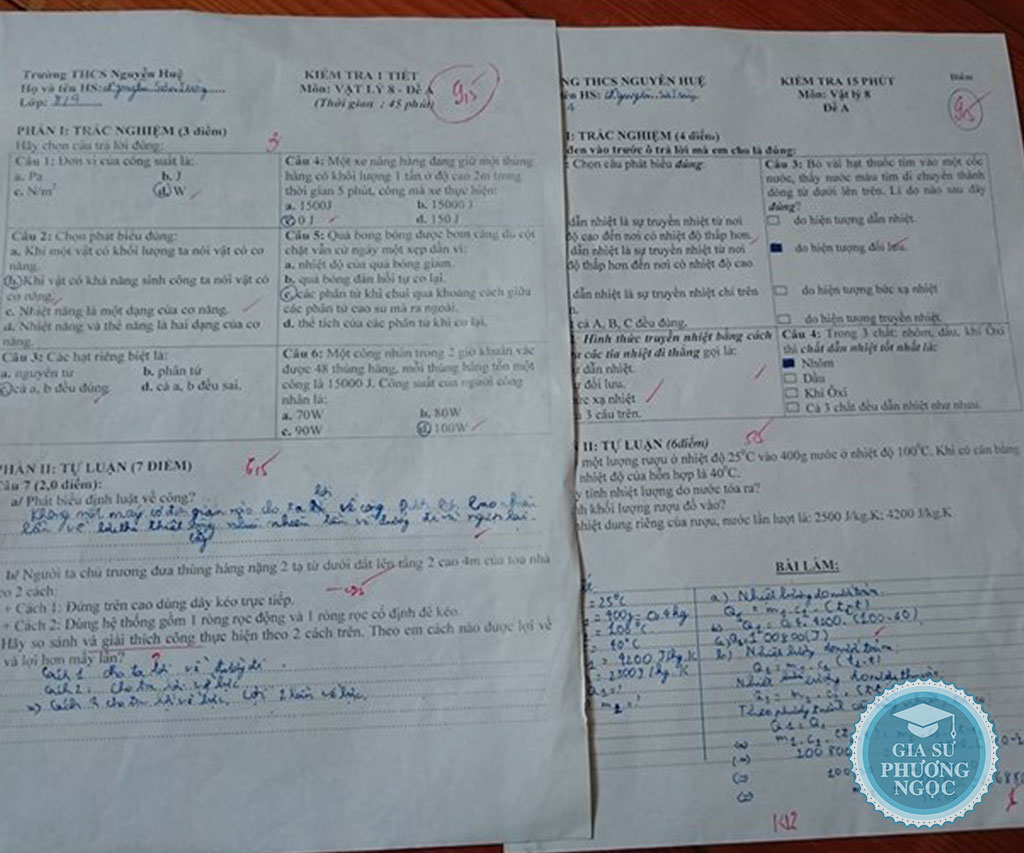 Trường THCS Nguyễn Huệ
Họ và tên HS: Nguyễn
Lớp: 8/9
KIỂM TRA 1 TIẾT
Môn: VẬT LÝ 8 - Đề A
(Thời gian : 45 phút)
9,5
PHẦN I: TRẮC NGHIỆM (3 điểm)
3
Hãy chọn câu trả lời đúng:
Câu 1: Đơn vị của công suất là:
a. Pa
b. J
c. N/m²
d. W
Câu 2: Chọn phát biểu đúng:
a. Khi một vật có khối lượng ta nói vật có cơ
năng.
b. Khi vật có khả năng sinh công ta nói vật có
cơ năng.
c. Nhiệt năng là một dạng của cơ năng.
d. Nhiệt năng và thế năng là hai dạng của cơ
năng.
Câu 3: Các hạt riêng biệt là:
a. nguyên tử
b. phân tử
c. cả a, b đều đúng
d. cả a, b đều sai.
Câu 4: Một xe nâng hàng đang giữ một thùng
hàng có khối lượng 1 tấn ở độ cao 2m trong
thời gian 5 phút, công mà xe thực hiện:
a. 1500J
b. 15000 J
c. 0 J
d. 150 J
Câu 5: Quả bong bóng được bơm căng dù cột
chặt vẫn cứ ngày một xẹp dần vì:
a. nhiệt độ của quả bóng giảm.
b. quả bóng đàn hồi tự co lại.
c. các phân tử khí chui qua khoảng cách giữa
các phân tử cao su mà ra ngoài.
d. thể tích của các phân tử khí co lại.
Câu 6: Một công nhân trong 2 giờ khuân vác
được 48 thùng hàng, mỗi thùng hàng tốn một
công là 15000 J. Công suất của người công
nhân là:
a. 70W
b. 80W
c. 90W
d. 100W
PHẦN II: TỰ LUẬN (7 ĐIỂM)
6,5
Câu 7 (2,0 điểm):
a/ Phát biểu định luật về công?
Không một máy cơ đơn giản nào cho ta lợi về công
lần về lực thì thiệt bấy nhiêu lần về đường đi và ngược lại.
b/ Người ta chủ trương đưa thùng hàng nặng 2 tạ từ dưới đất lên tầng 2 cao 4m của toà nhà
eo 2 cách:
+ Cách 1: Đứng trên cao dùng dây kéo trực tiếp.
+ Cách 2: Dùng hệ thống gồm 1 ròng rọc động và 1 ròng rọc cố định để kéo.
Hãy so sánh và giải thích công thực hiện theo 2 cách trên. Theo em cách nào được lợi về
và lợi hơn mấy lần?
Cách 1 cho ta lợi về đường đi.
Cách 2: Cho ta lợi về lực
NG THCS NGUYỄN HUỆ
ên HS: Nguyễn
KIỂM TRA 15 PHÚT
Môn: Vật lý 8
Đề A
Điểm
9,5
I: TRẮC NGHIỆM (4 điểm)
đen vào trước ô trả lời mà em cho là đúng:
: Chọn câu phát biểu đúng:
dẫn nhiệt là sự truyền nhiệt từ nơi
độ cao đến nơi có nhiệt độ thấp hơn.
dẫn nhiệt là sự truyền nhiệt từ nơi
độ thấp hơn đến nơi có nhiệt độ cao
dẫn nhiệt là sự truyền nhiệt chỉ trên
cả A, B, C đều đúng.
Hình thức truyền nhiệt bằng cách
các tia nhiệt đi thẳng gọi là:
dẫn nhiệt.
đối lưu.
ức xạ nhiệt
3 câu trên.
Câu 3: Bỏ vài hạt thuốc tím vào một cốc
nước, thấy nước màu tím di chuyển thành
dòng từ dưới lên trên. Lí do nào sau đây
đúng?
do hiện tượng dẫn nhiệt.
do hiện tượng đối lưu.
do hiện tượng bức xạ nhiệt
do hiện tượng truyền nhiệt.
Câu 4: Trong 3 chất: nhôm, dầu, khí Ôxi
thì chất dẫn nhiệt tốt nhất là:
Nhôm
Dầu
Khí Ôxi
Cả 3 chất đều dẫn nhiệt như nhau.
II: TỰ LUẬN (6điểm)
5,5
một lượng rượu ở nhiệt độ 25°C vào 400g nước ở nhiệt độ 100°C. Khi có cân bằng
nhiệt độ của hỗn hợp là 40°C.
y tính nhiệt lượng do nước tỏa ra?
nh khối lượng rượu đổ vào?
nhiệt dung riêng của rượu, nước lần lượt là: 2500 J/kg.K; 4200 J/kg.K
BÀI LÀM:
= 25°C
= 400g = 0,4kg
= 100°C
= 40°C
= 4200 J/kg.K
= 2500 J/kg.K
a) Nhiệt lượng do nước
4200. (100-40)
100800 (J)
b) Nhiệt lượng do
100 800
K12
GIA SƯ
PHƯƠNG
NGỌC